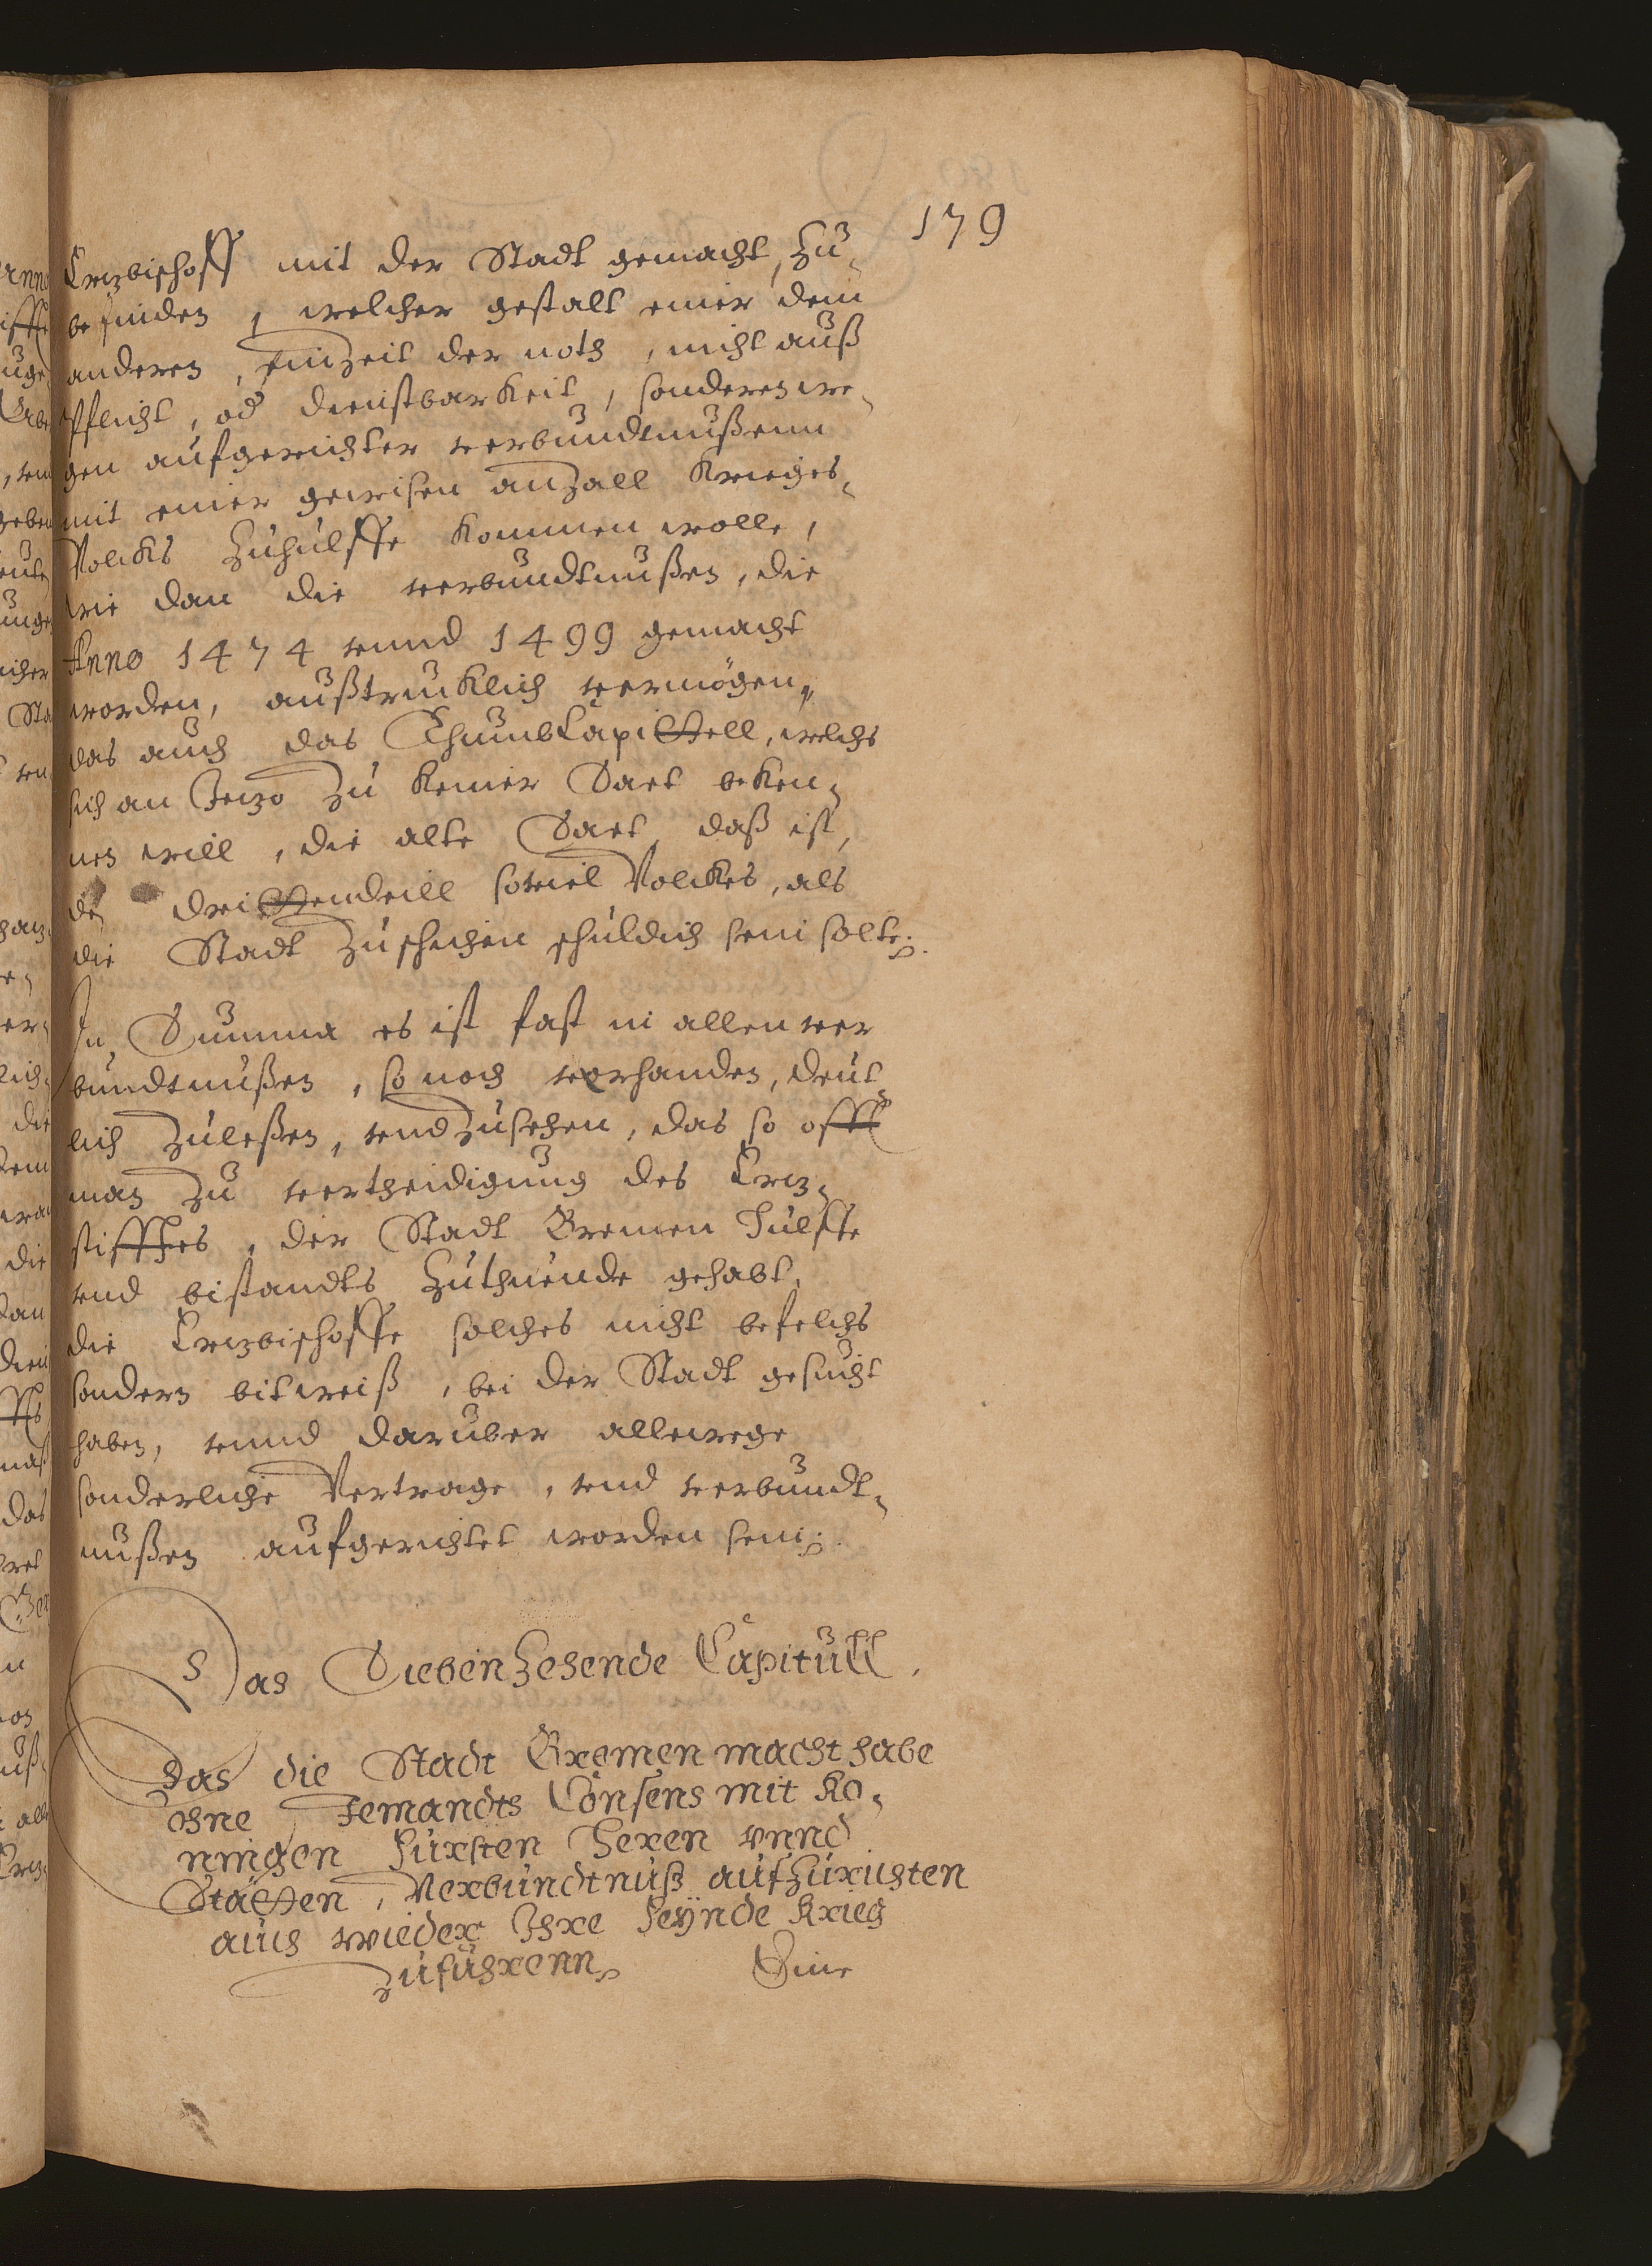 179
Ertzbischoff mit der Stadt gemacht, zu-
befinden, welcher gestalt einer dem
anderen, in Zeit der noth, nicht auß
Pflicht, od dienstbarkeit, sonderen we-
gen aufgerichter verbundtnußenn
mit einer gewisen anzall Krieges-
Volcks zuhulffe kommen wolle,
wie dan die verbundtnußen, die
Anno 1474 vnnd 1499 gemacht
worden, außtrucklich vermögen,
das auch das Thumb Capittell, welchs
sich an Jetzo zu keiner Part beken-
nen will, die alte Part, daß ist,
den drittendeill soviel Volckes, als
die Stadt zuschicken schuldich sein solte.
In Summa es ist fast in allen ver
bundtnußen, so noch vorhanden, deut-
lich zuleßen, vnd zusehen, das so offt
man zu vertheidigung des Ertz-
stifftes, der Stadt Bremen Hulffe
vnd bistandts zuthuende gehabt,
die Ertzbischoffe solches nicht befelchs
sondern bitweiß, bei der Stadt gesucht
haben, vnnd daruber allewege
sonderliche Vertrage, vnd verbundt-
nußen aufgerichtet worden sein.
Das Siebenzehende Capitull.
Das die Stadt Bremen macht habe
ohne Jemandts Consens mit Ko-
ningen Fursten Heren vnnd
Stätten, Verbundtnuß aufzurichten
auch wieder Ihre Feÿnde Krieg
zufuhrenn
Eine